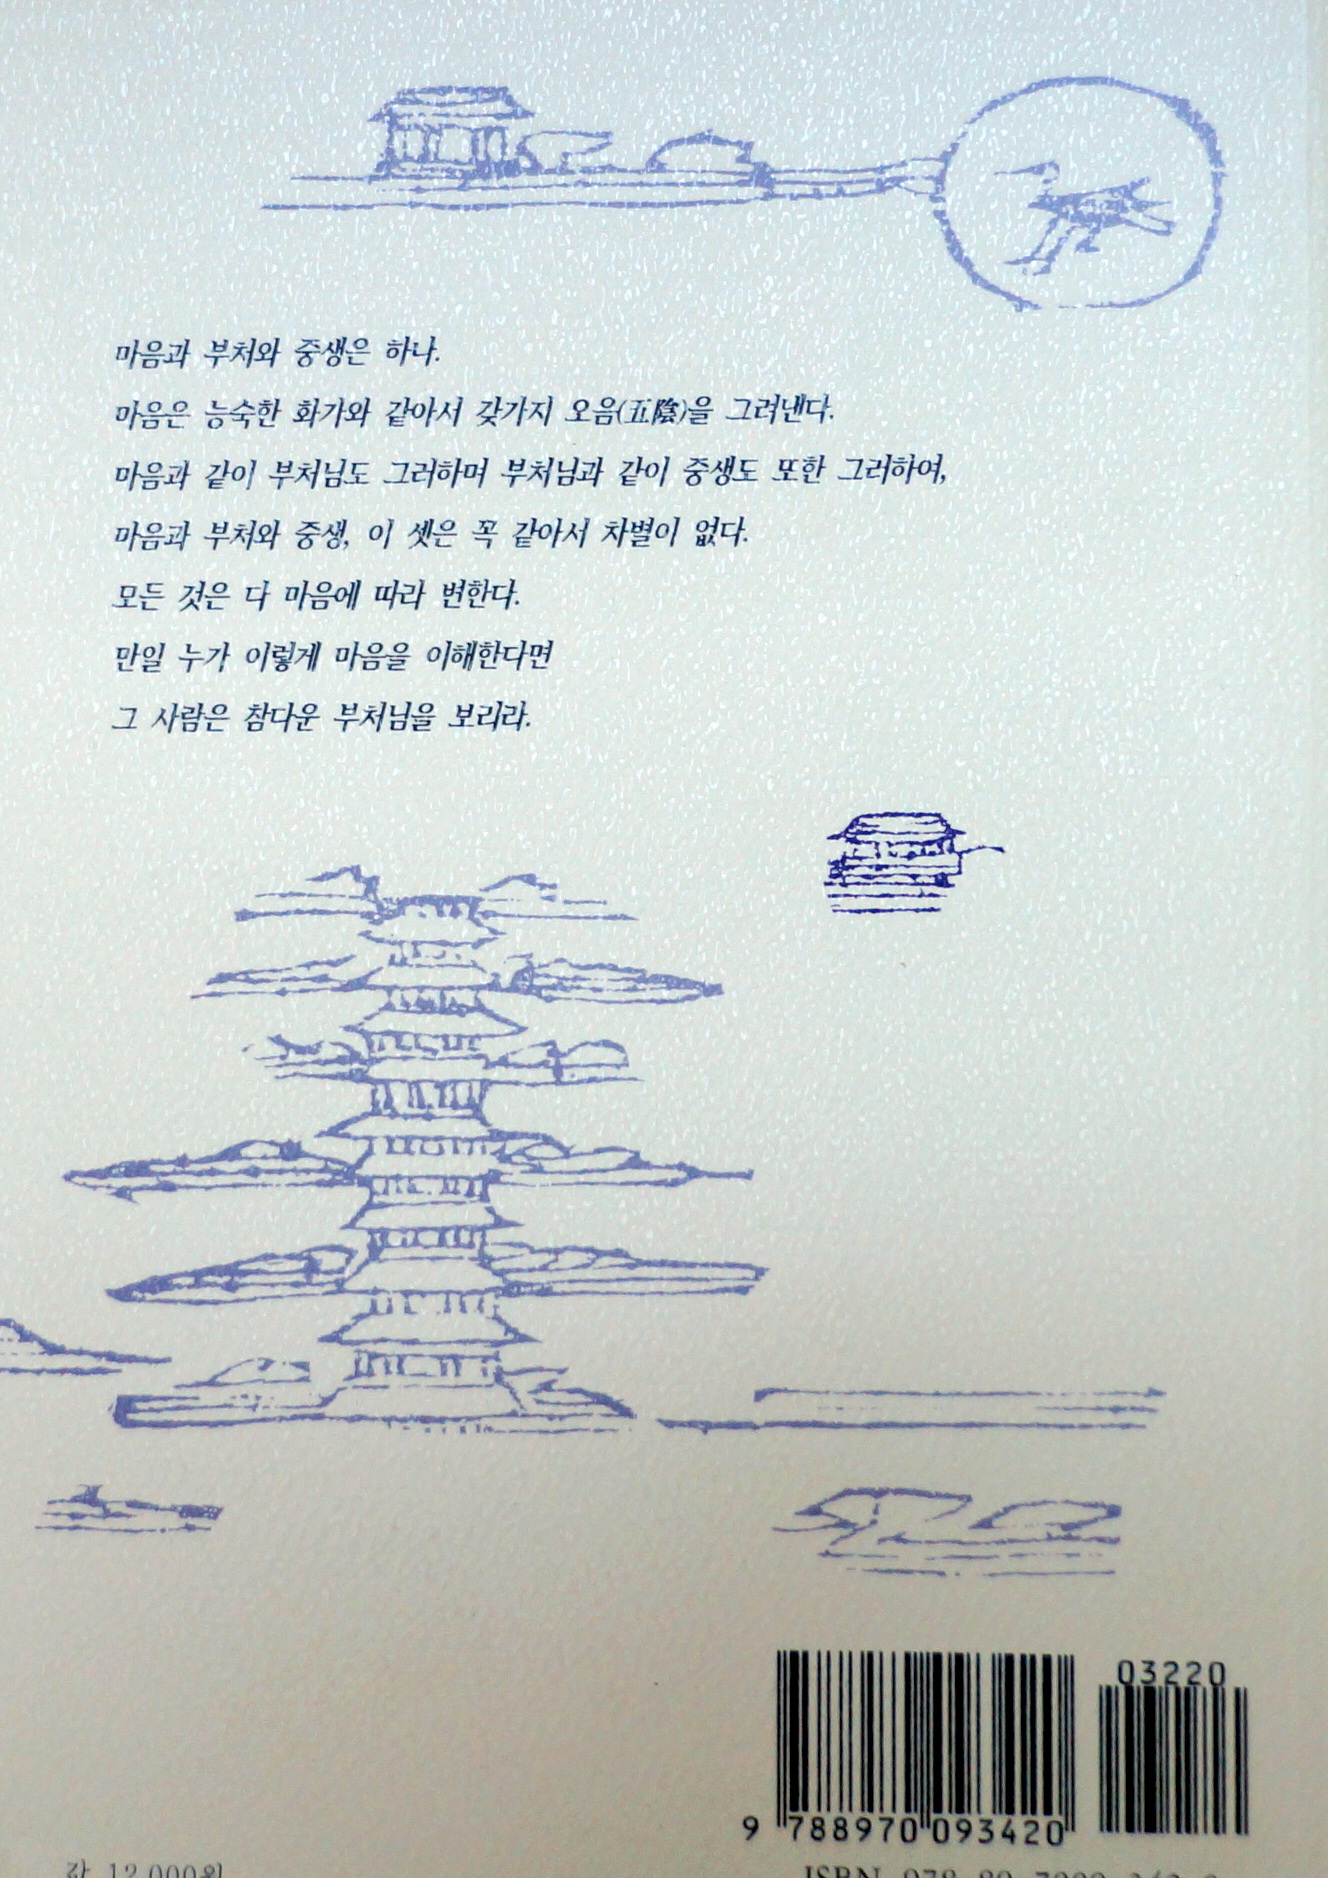 마음과 부처와 중생은 하나.
마음은 능숙한 화가와 같아서 갖가지 오음(五陰)을 그려낸다.
마음과 같이 부처님도 그러하며 부처님과 같이 중생도 또한 그러하여,
마음과 부처와 중생, 이 셋은 꼭 같아서 차별이 없다.
모든 것은 다 마음에 따라 변한다.
만일 누가 이렇게 마음을 이해한다면
그 사람은 참다운 부처님을 보리라.
03220
9 788970 093420
값 12,000원
ISBN 978-89-7009-342-0